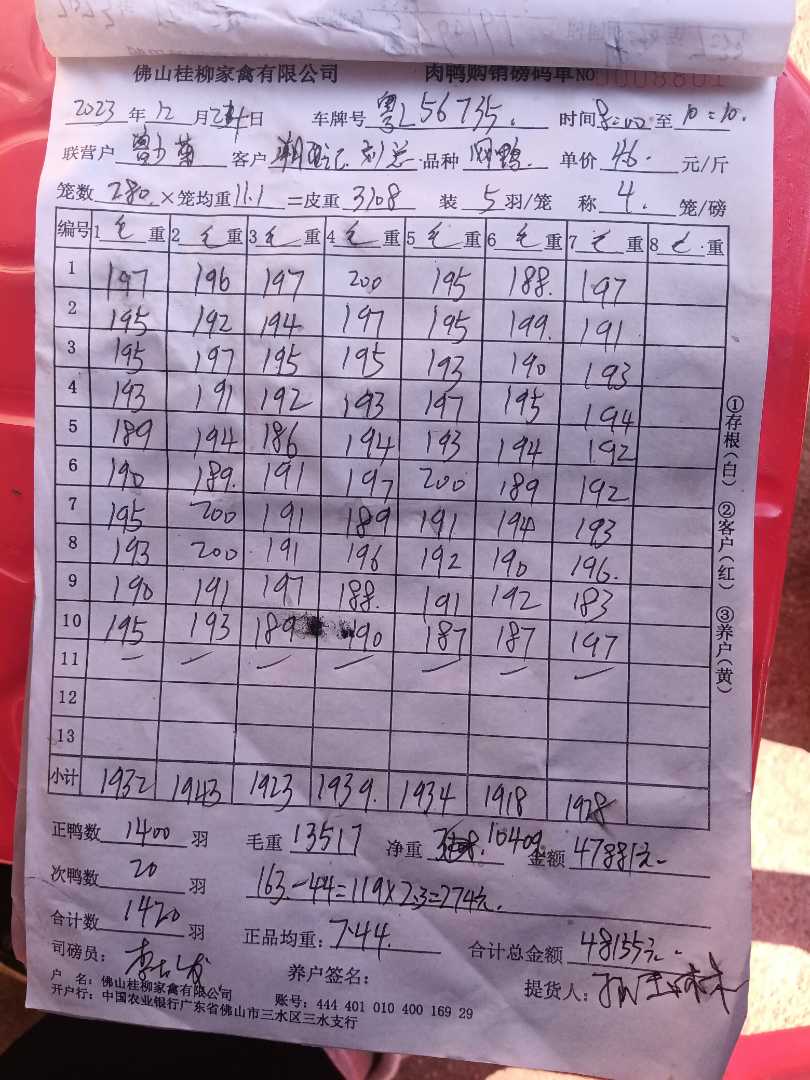 佛山桂柳家禽有限公司 肉鸭购销磅码单 NO 0008801
2023 年 12 月 日 车牌号 粤L56735. 时间 8:00 至 10:10.
联营户 客户 品种 单价 4.6. 元/斤
笼数 280. ×笼均重 11.1 =皮重 3108 装 5 羽/笼 称 4. 笼/磅
编号 1 毛 重 2 毛 重 3 毛 重 4 毛 重 5 毛 重 6 毛 重 7 毛 重 8 毛 重
1 197 196 197 200 195 188. 197
2 195 192 194 197 195 199. 191
3 195 197 195 195 193 190 193
4 193 191 192 193 197 195 194
5 189 194 186 194 193 194 192
6 190 189. 191 197 200 189 192
7 195 200 191 189 191 194 193
8 193 200 191 196 192 190 196.
9 190 191 197 188. 191 192 183
10 195 193 189 190 187 187 197
11 — — — — — — —
12
13
小计 1932 1943 1923 1939. 1934 1918 1928
正鸭数 1400 羽 毛重 13517 净重 10409 金额 47881元-
次鸭数 20 羽 163.-44=119×2.3=274元.
合计数 1420 羽 正品均重: 7.44. 合计总金额 48155元-
司磅员: 养户签名: 提货人:
户 名: 佛山桂柳家禽有限公司
开户行: 中国农业银行广东省佛山市三水区三水支行 账号: 444 401 010 400 169 29
①存根(白) ②客户(红) ③养户(黄)